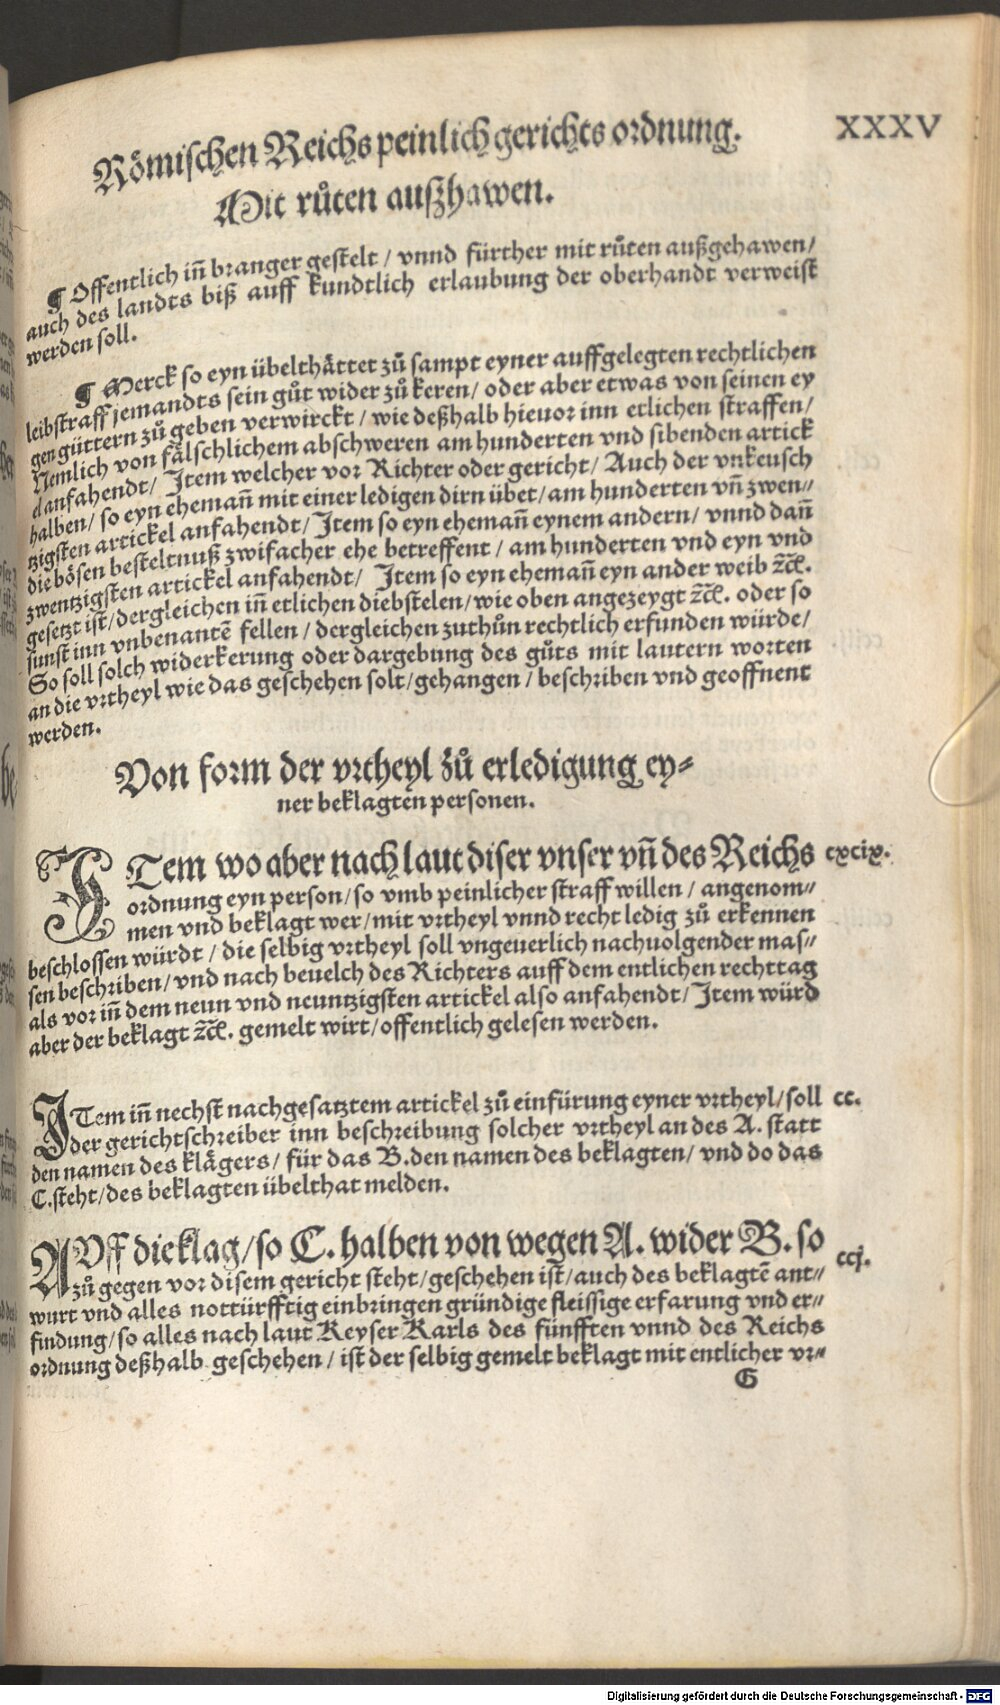 Römischen Reichs peinlich gerichts ordnung. XXXV
Mit růten außhawen.
¶ Offentlich iñ branger gestelt / vnnd fürther mit růten außgehawen /
auch des landts biß auff kundtlich erlaubung der oberhandt verweist
werden soll.
¶ Merck so eyn übelthåttet zů sampt eyner auffgelegten rechtlichen
leibstraff jemandts sein gůt wider zů keren / oder aber etwas von seinen ey
gen güttern zů geben verwirckt / wie deßhalb hieuor inn etlichen straffen /
Nemlich von fålschlichem abschweren am hunderten vnd sibenden artick
el anfahendt / Item welcher vor Richter oder gericht / Auch der vnkeusch
halben / so eyn ehemañ mit einer ledigen dirn übet / am hunderten vñ zwen⸗
tzigsten artickel anfahendt / Item so eyn ehemañ eynem andern / vnnd dañ
die bösen besteltnuß zwifacher ehe betreffent / am hunderten vnd eyn vnd
zwentzigsten artickel anfahendt / Item so eyn ehemañ eyn ander weib ꝛc̃.
gesetzt ist / dergleichen iñ etlichen diebstelen / wie oben angezeygt ꝛc̃. oder so
sunst inn vnbenantẽ fellen / dergleichen zuthůn rechtlich erfunden würde /
So soll solch widerkerung oder dargebung des gůts mit lautern worten
an die vrtheyl wie das geschehen solt / gehangen / beschriben vnd geoffnent
werden.
Von form der vrtheyl zů erledigung ey⸗
ner beklagten personen.
ITem wo aber nach laut diser vnser vñ des Reichs cxcix.
ordnung eyn person / so vmb peinlicher straff willen / angenom⸗
men vnd beklagt wer / mit vrtheyl vnnd recht ledig zů erkennen
beschlossen würdt / die selbig vrtheyl soll vngeuerlich nachuolgender mas⸗
sen beschriben / vnd nach beuelch des Richters auff dem entlichen rechttag
als vor iñ dem neun vnd neuntzigsten artickel also anfahendt / Item würd
aber der beklagt ꝛc̃. gemelt wirt / offentlich gelesen werden.
ITem iñ nechst nachgesatztem artickel zů einfürung eyner vrtheyl / soll cc.
der gerichtschreiber inn beschreibung solcher vrtheyl an des A. statt
den namen des klågers / für das B. den namen des beklagten / vnd do das
C. steht / des beklagten übelthat melden.
AVff die klag / so C. halben von wegen A. wider B. so
zů gegen vor disem gericht steht / geschehen ist / auch des beklagtẽ ant⸗ ccj.
wurt vnd alles nottürfftig einbringen gründige fleissige erfarung vnd er⸗
findung / so alles nach laut Keyser Karls des fünfften vnnd des Reichs
ordnung deßhalb geschehen / ist der selbig gemelt beklagt mit entlicher vr⸗
G
Digitalisierung gefördert durch die Deutsche Forschungsgemeinschaft - DFG